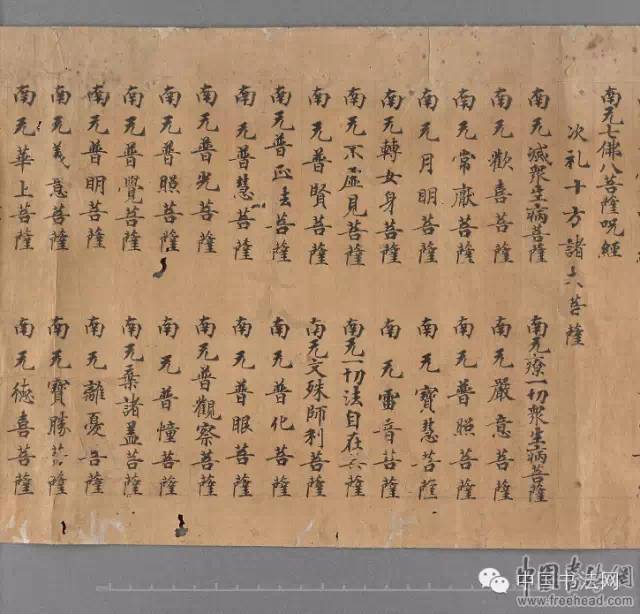 南无七佛八菩薩呪經
次礼十方諸大菩薩
南无滅衆生病菩薩 南无療一切衆生病菩薩
南无歡喜菩薩 南无嚴意菩薩
南无常猒菩薩 南无普照菩薩
南无月明菩薩 南无寶慧菩薩
南无轉女身菩薩 南无雷音菩薩
南无不虛見菩薩 南无一切法自在菩薩
南无普賢菩薩 南无文殊師利菩薩
南无普正去菩薩 南无普化菩薩
南无普慧菩薩 南无普眠菩薩
南无普光菩薩 南无普觀察菩薩
南无普照菩薩 南无普憧菩薩
南无普覺菩薩 南无棄諸盖菩薩
南无普明菩薩 南无離憂菩薩
南无義意菩薩 南无寶勝菩薩
南无華上菩薩 南无德喜菩薩
中国书法网
www.freehead.com